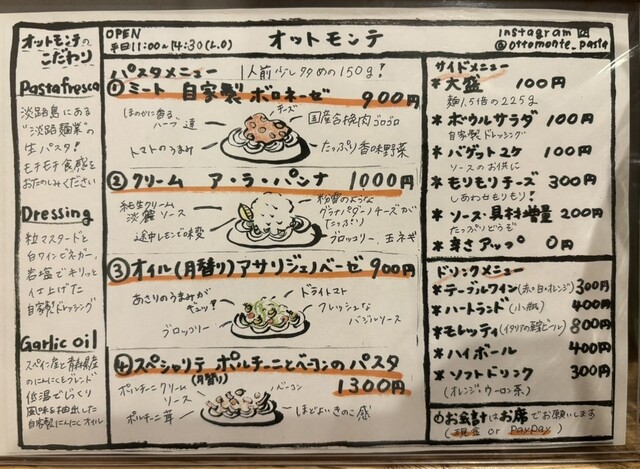 オットモンテの
こだわり
Pastafresca
淡路島にある
"淡路麺業"の
生パスタ!
モチモチ食感を
おたのしみください
Dressing
粒マスタードと
白ワインビネガー、
岩塩でキリッと
仕上げた
自家製ドレッシング
Garlic oil
スペイン産と青森県産
のにんにくをブレンド
低温でじっくり
風味を抽出した
自家製にんにくオイル
OPEN
平日11:00~14:30(L.O)
オットモンテ
instagram
@ottomonte_pasta
パスタメニュー
1人前 少し多めの150g!
① ミート 自家製 ボロネーゼ 900円
ほのかに香る、
ハーブ達
チーズ
国産合挽肉ゴロゴロ
トマトのうまみ
たっぷり香味野菜
② クリーム ア・ラ・パンナ 1000円
純生クリーム
淡麗ソース
粉雪のような
グラナパダーノチーズが
たっぷり
途中レモンで味変
ブロッコリー、玉ネギ
③ オイル(月替り) アサリジェノベーゼ 900円
あさりのうまみが
ギュッ!
ドライトマト
フレッシュな
バジルソース
ブロッコリー
④ スペシャリテ ポルチーニとベーコンのパスタ
(月替り)
1300円
ポルチーニクリーム
ソース
ベーコン
ポルチーニ茸
ほどよいきのこ感
サイドメニュー
* 大盛 100円
麺1.5倍の225g
* ボウルサラダ 100円
自家製ドレッシング
* バゲット2ケ 100円
ソースのお供に
* モリモリチーズ 300円
しあわせもりもり!
* ソース・具材増量 200円
たっぷりどうぞ
* 辛さアップ 0円
ドリンクメニュー
* テーブルワイン(赤・白・オレンジ) 300円
* ハートランド (小瓶) 400円
* モレッティ (イタリアの生ビール) 800円
* ハイボール 400円
* ソフトドリンク 300円
(オレンジ、ウーロン茶)
お会計はお席でお願いします
(現金 or PayPay)